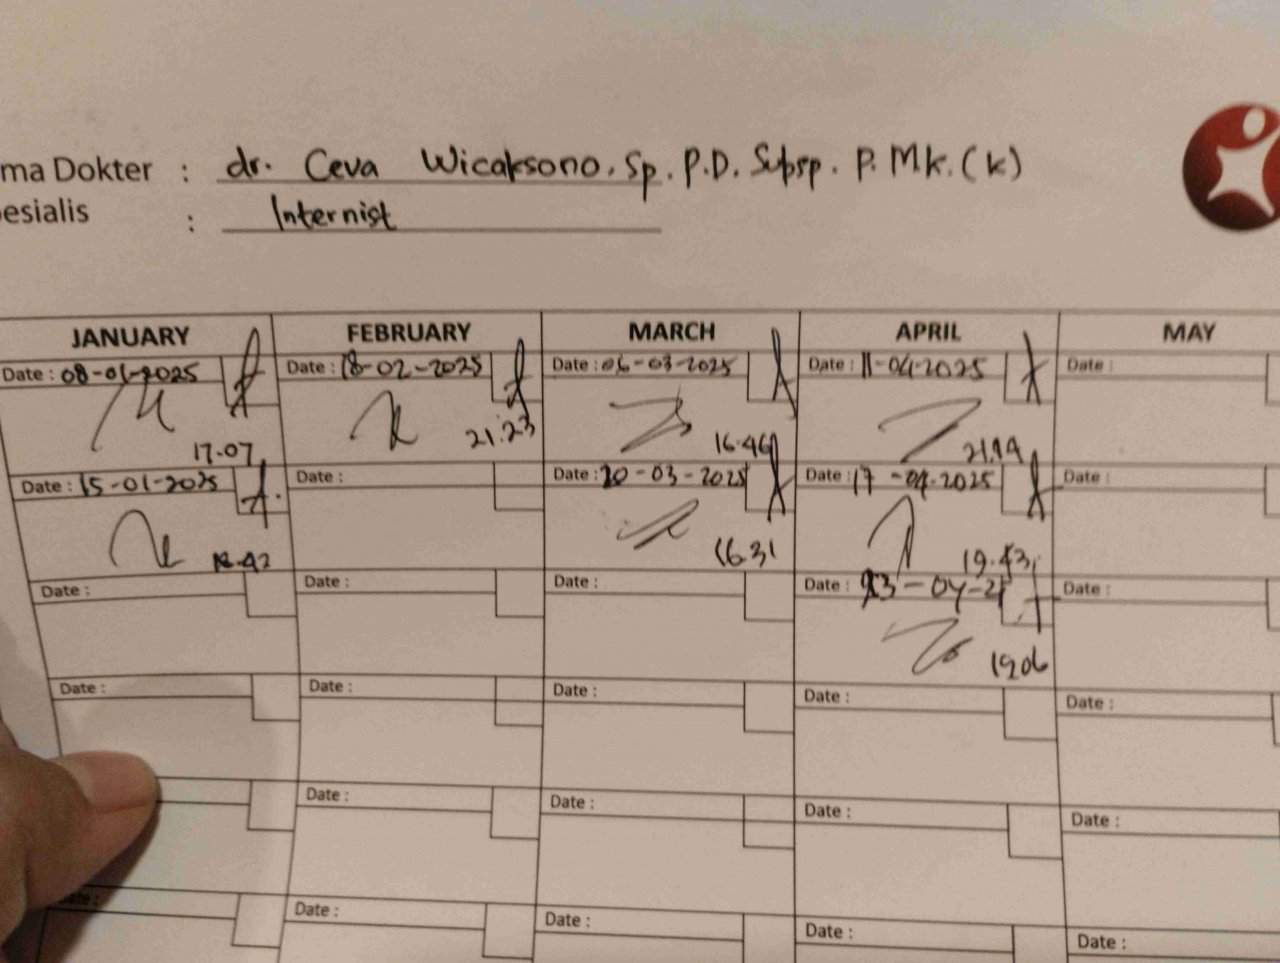 ma Dokter : dr. Ceva Wicaksono, Sp. P.D. Subsp. P. M.K. (K)
esialis : Internist
JANUARY FEBRUARY MARCH APRIL MAY
Date : 08-01-2025 Date : 18-02-2025 Date : 06-03-2025 Date : 11-04-2025 Date :
17.07 21.23 16.46
Date : 15-01-2025 Date : Date : 20-03-2025 Date : 17-04-2025 Date :
16.31
Date : Date : Date : Date : 23-04-25 Date :
19.06
Date : Date : Date : Date : Date :
Date : Date : Date : Date :
Date : Date : Date : Date : Date :